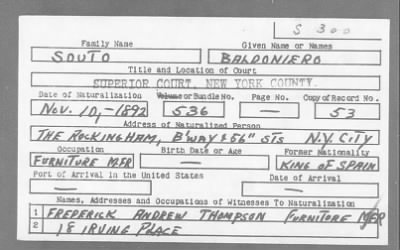 S 300
Family Name Given Name or Names
SOUTO BALDONIERO
Title and Location of Court
SUPERIOR COURT, NEW YORK COUNTY.
Date of Naturalization Volume or Bundle No. Page No. Copy of Record No.
NOV. 10,-1892 536 — 53
Address of Naturalized Person
THE ROCKINGHAM, B'WAY & 56" STS N.Y. CITY
Occupation Birth Date or Age Former Nationality
FURNITURE MFR — KING OF SPAIN
Port of Arrival in the United States Date of Arrival
— —
Names, Addresses and Occupations of Witnesses To Naturalization
1 FREDERICK ANDREW THOMPSON FURNITURE MFR
2 18 IRVING PLACE